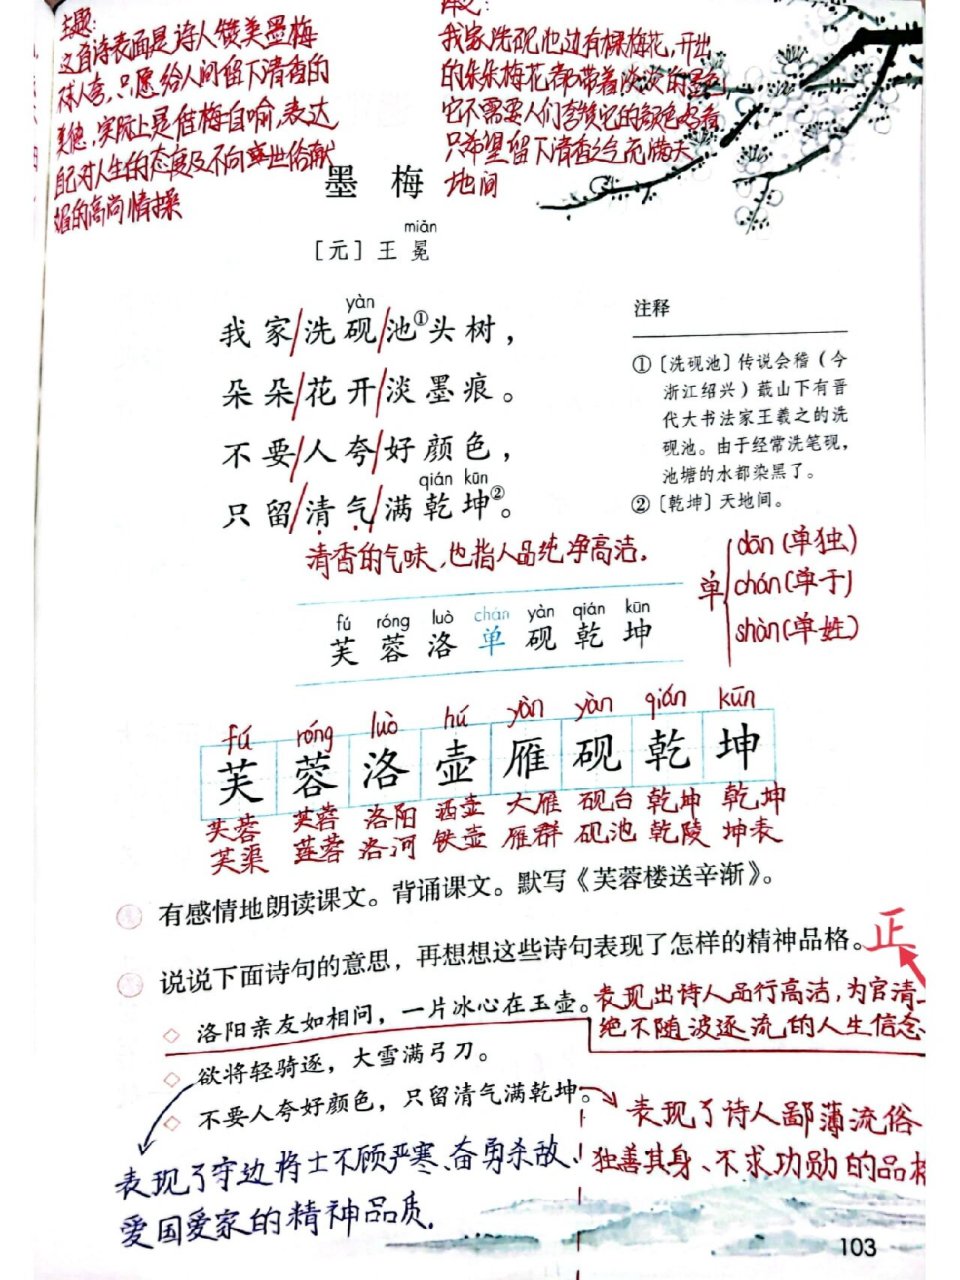 主题:
这首诗表面是诗人赞美墨梅
不求人夸,只愿给人间留下清香的
美德,实际上是借梅自喻,表达
自己对人生的态度及不向世俗献
媚的高尚情操
译文:
我家洗砚池边有棵梅花,开出
的朵朵梅花都带着淡淡的墨色
它不需要人们夸赞它的颜色好看
只希望留下清香之气充满天
地间
墨梅
miǎn
[元]王冕
yàn
我家/洗砚/池①头树,
朵朵/花开/淡墨痕。
不要/人夸/好颜色,
qián kūn
只留/清气/满乾坤②。
清香的气味,也指人品纯净高洁.
注释
①[洗砚池]传说会稽(今
浙江绍兴)蕺山下有晋
代大书法家王羲之的洗
砚池。由于经常洗笔砚,
池塘的水都染黑了。
②[乾坤]天地间。
单
dān(单独)
chán(单于)
shàn(单姓)
fú róng luò chán yàn qián kūn
芙蓉洛单砚乾坤
fú róng luò hú yàn yàn qián kūn
芙蓉洛壶雁砚乾坤
芙蓉 芙蓉 洛阳 酒壶 大雁 砚台 乾坤 乾坤
芙渠 莲蓉 洛河 铁壶 雁群 砚池 乾陵 坤表
有感情地朗读课文。背诵课文。默写《芙蓉楼送辛渐》。
说说下面诗句的意思,再想想这些诗句表现了怎样的精神品格。
正
◇ 洛阳亲友如相问,一片冰心在玉壶。
表现出诗人品行高洁,为官清
绝不随波逐流的人生信念
◇ 欲将轻骑逐,大雪满弓刀。
◇ 不要人夸好颜色,只留清气满乾坤。
表现了诗人鄙薄流俗
独善其身、不求功勋的品格
表现了守边将士不顾严寒、奋勇杀敌、
爱国爱家的精神品质.
103